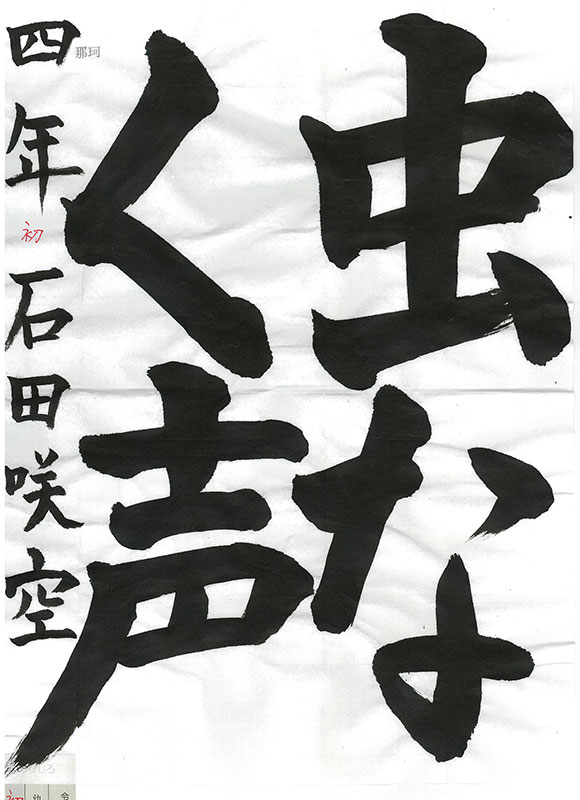 虫な
く声
四年 初 石田咲空
那珂
初 幼 令